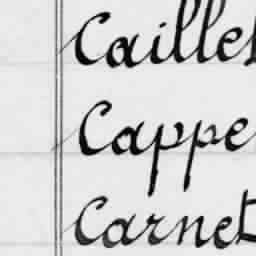 Caillet
Cappe
Carnet